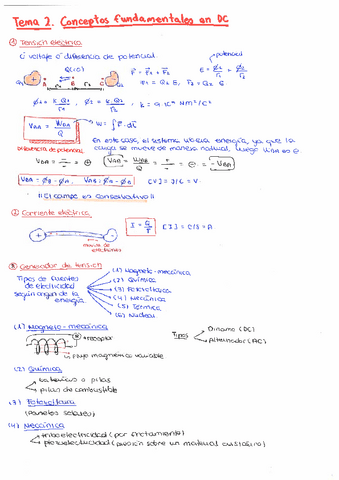 Tema 2. Conceptos fundamentales en DC
① Tensión eléctrica
ó voltaje ó diferencia de potencial.
potencial
Q(>0)
F = F₁ + F₂
W = ∫F·dl
En este caso, el sistema libera energía, ya que la
carga se mueve de manera natural, luego
Diferencia de potencial
[V] = J/C = V
¡¡El campo es conservativo!!
② Corriente eléctrica
[I] = C/s = A
electrones
③ Generador de tensión
Tipos de fuentes
de electricidad
según origen de la
energía
(1) Magneto-mecánica
(2) Química
(3) Fotovoltaica
(4) Mecánica
(5) Térmica
(6) Nuclear
(1) Magneto-mecánica
receptor
flujo magnético variable
Tipos
Dinamo (DC)
Alternador (AC)
(2) Química
baterías o pilas
pilas de combustible
(3) Fotovoltaica
(paneles solares)
(4) Mecánica
triboelectricidad (por frotamiento)
piezoelectricidad (presión sobre un material cuarzoso)